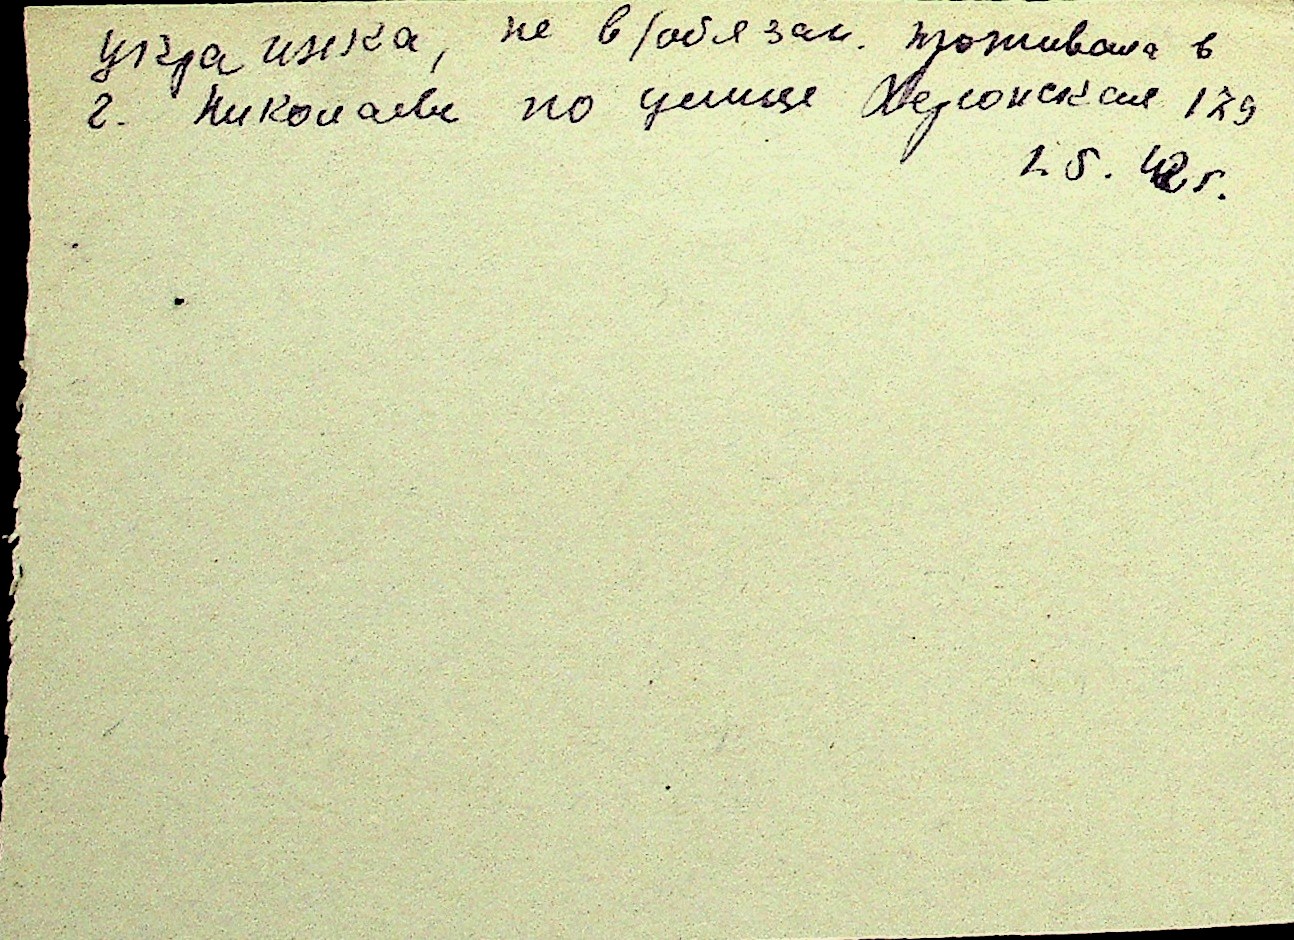 украинка, не в/обязан. проживала в
г. Николаеве по улице Херсонская 129
1.5.42г.